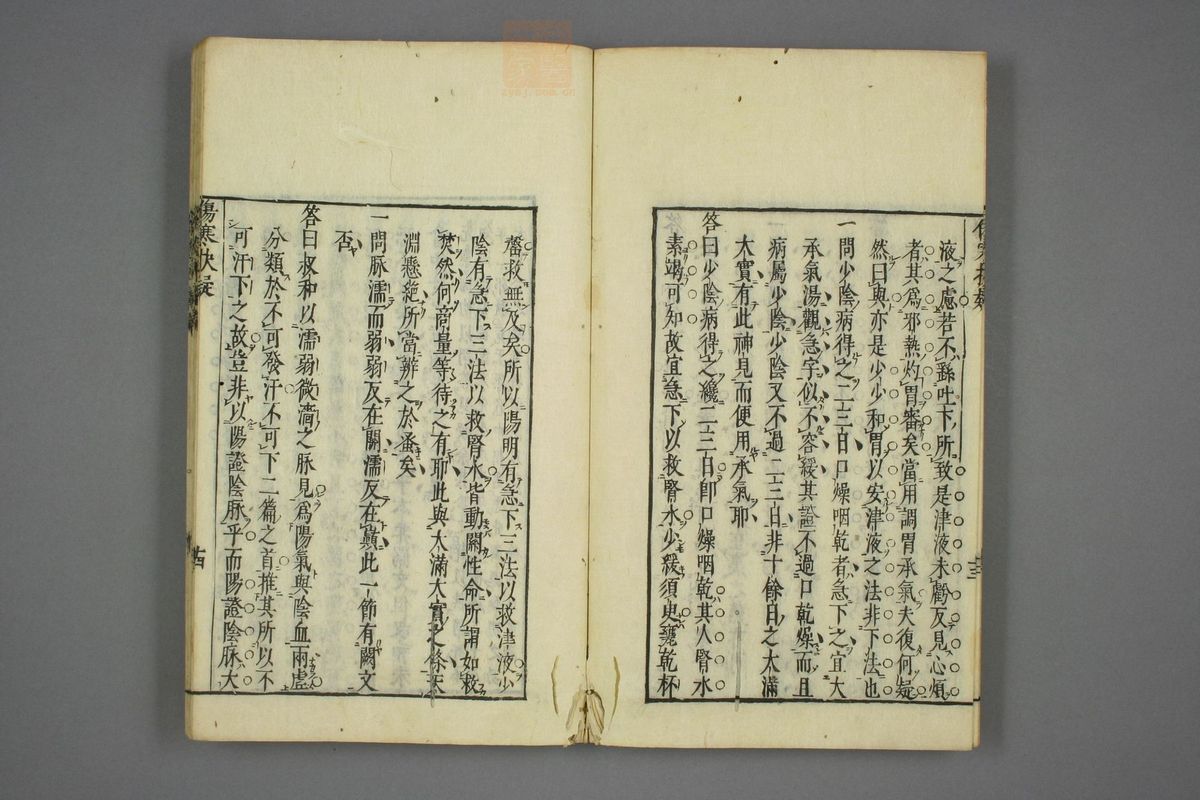 液之慮若不繇吐下所致是津液未虧反見心煩
者其爲邪熱灼胃審矣當用調胃承氣夫復何疑
然曰與亦是少少和胃以安津液之法非下法也
一問少陰病得之二三日口燥咽乾者急下之宜大
承氣湯觀急字似不容緩其證不過口乾燥而且
病屬少陰少陰又不過二三日非十餘日之大滿
大實有此神見而便用承氣耶
答曰少陰病得之纔二三日卽口燥咽乾其人腎水
素竭可知故宜急下以救腎水少緩須臾甕乾杯
罄救無及矣所以陽明有急下三法以救津液少
陰有急下三法以救腎水皆動關性命所謂如救
焚然何商量等待之有耶此與大滿大實之條天
淵懸絕所當辨之於蚤矣
一問脉濡而弱弱反在關濡反在巔此一節有闕文
否
答曰叔和以濡弱微濇之脉見爲陽氣與陰血兩虛
分類於不可發汗不可下二篇之首推其所以不
可汗下之故豈非以陽證陰脉乎而陽證陰脉大
傷寒決疑